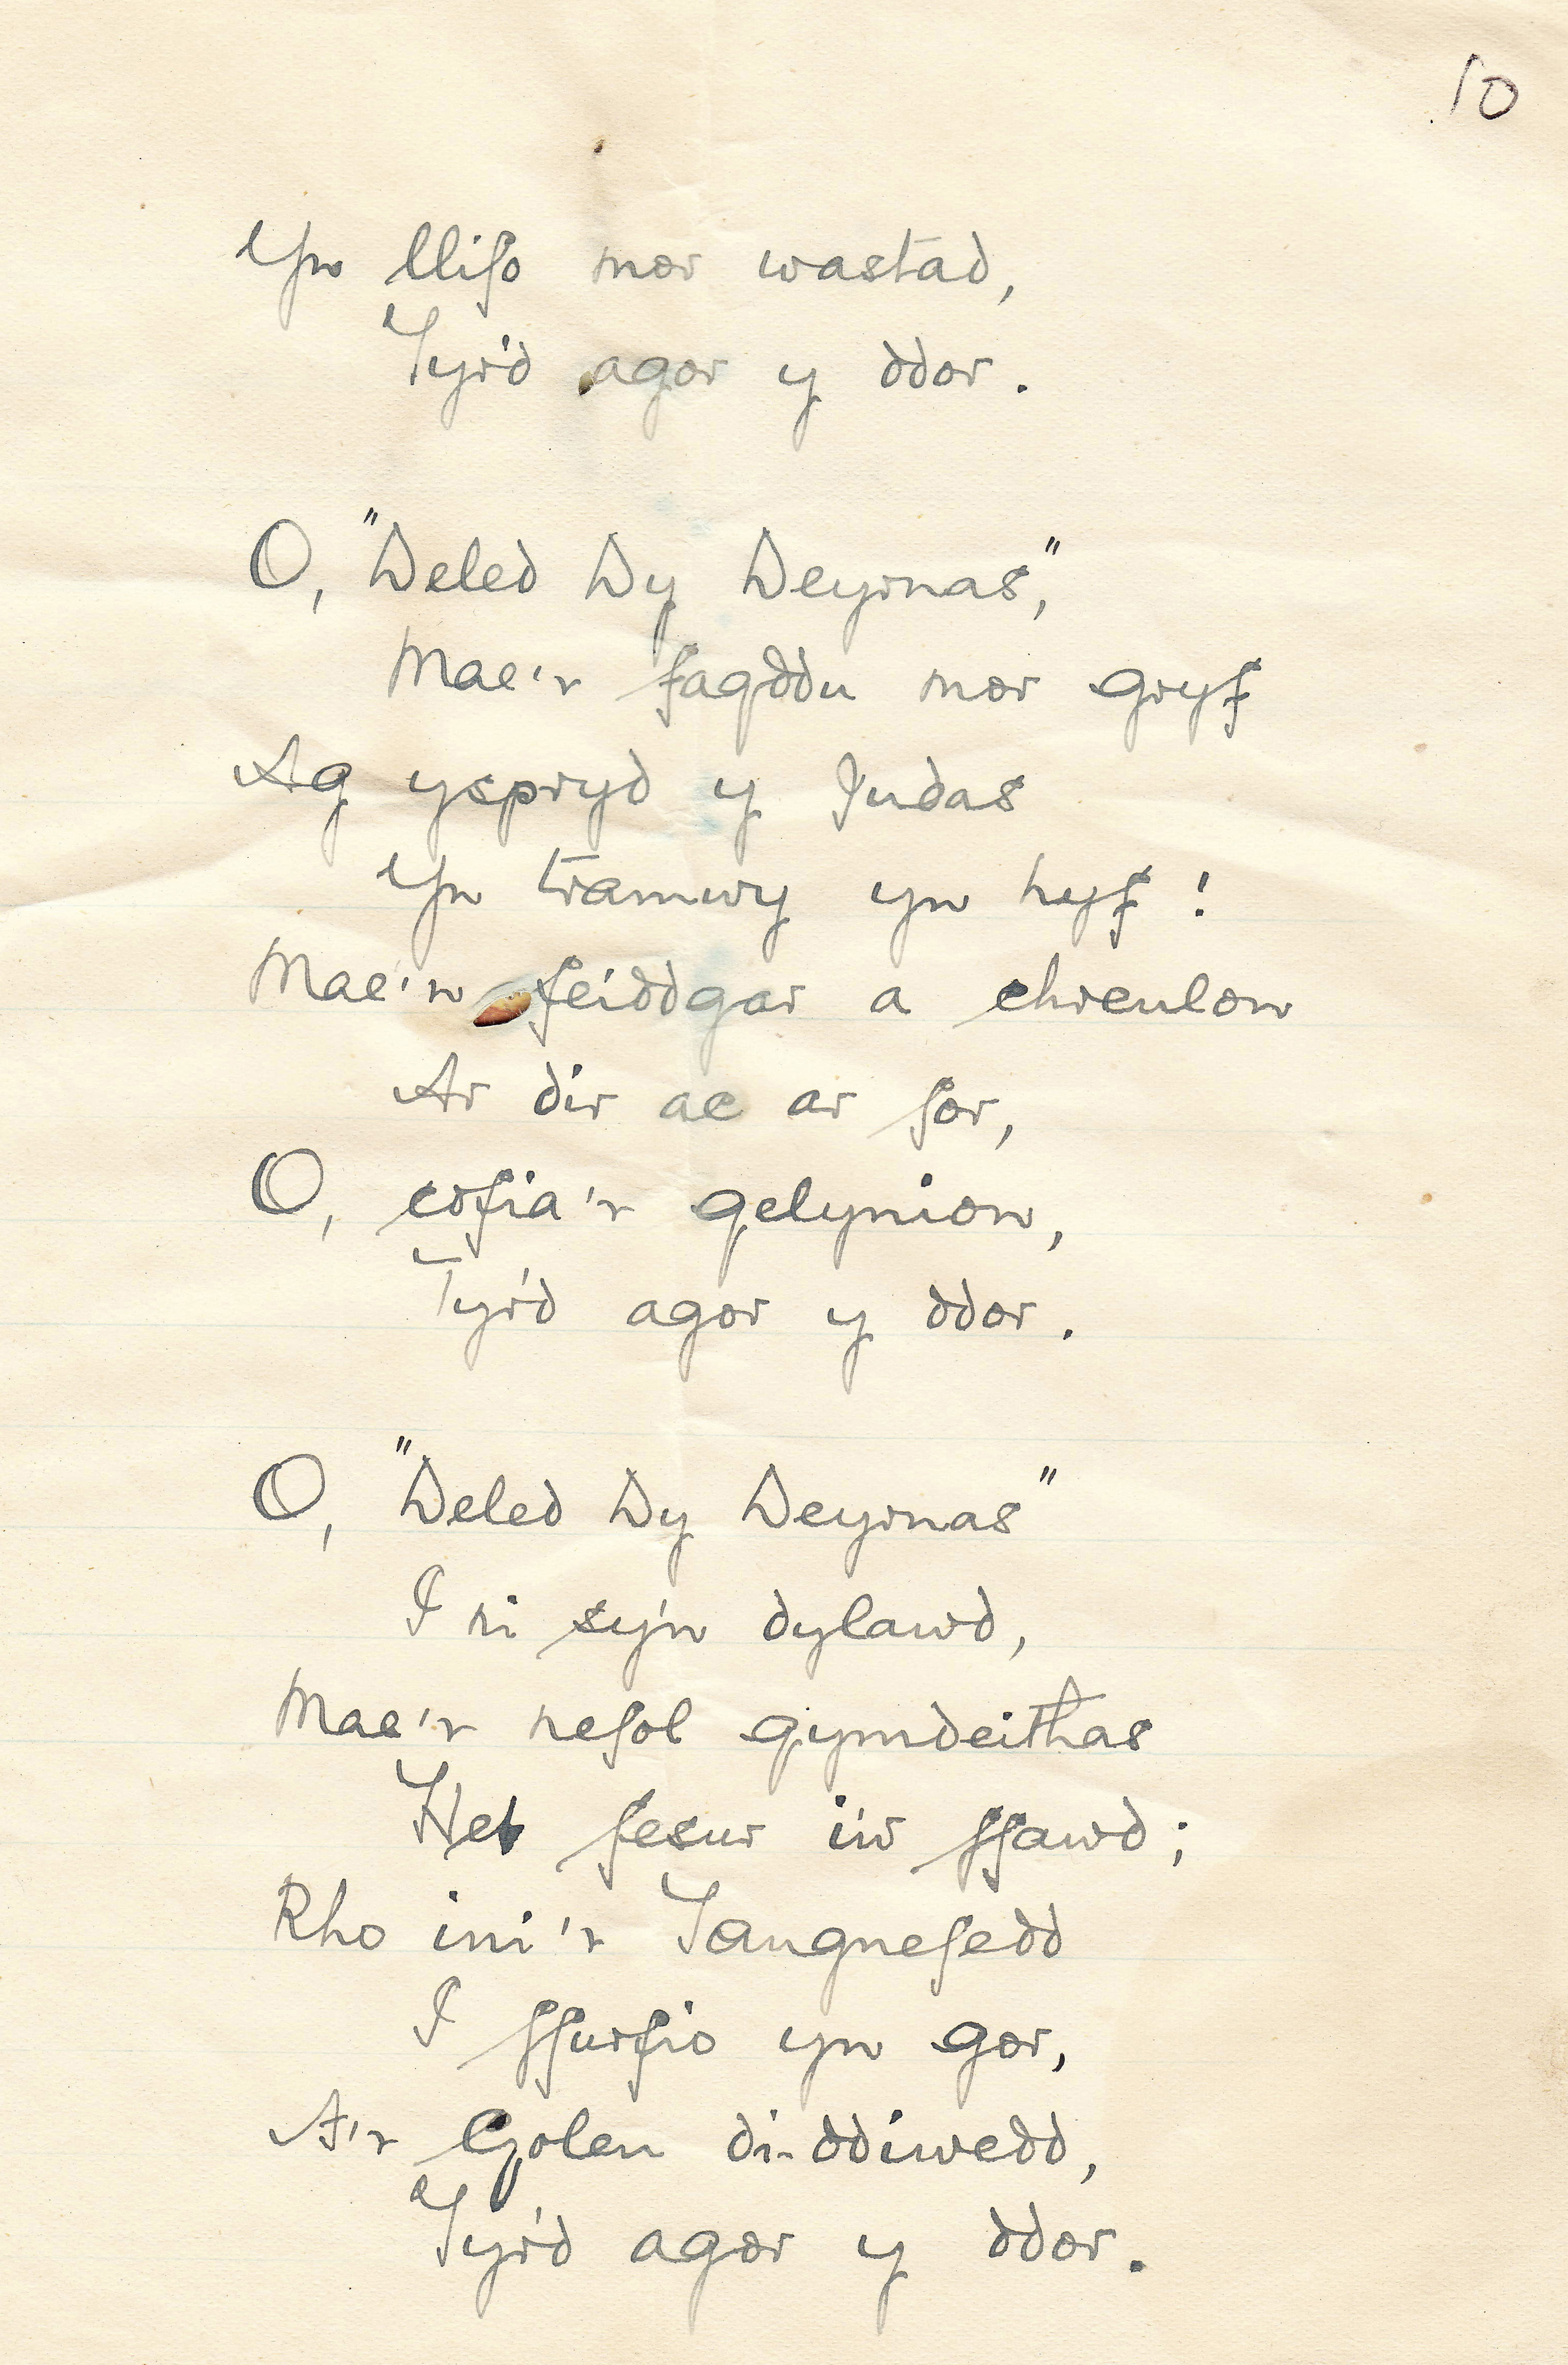 10
Yn llifo mor wastad,
Tyr'd agor y ddor.
O, "Deled Dy Deyrnas,"
Mae'r fagddu mor gryf
Ag yspryd y Judas
Yn tramwy yn hyf!
Mae'n feiddgar a chreulon
Ar dir ac ar for,
O, cofia'r gelynion,
Tyr'd agor y ddor.
O, "Deled Dy Deyrnas"
I ni sy'n dylawd,
Mae'r nefol gymdeithas
Heb fesur i'w ffawd;
Rho ini'r Tangnefedd
I ffurfio yn gor,
A'r Goleu di-ddiwedd,
Tyr'd agor y ddor.